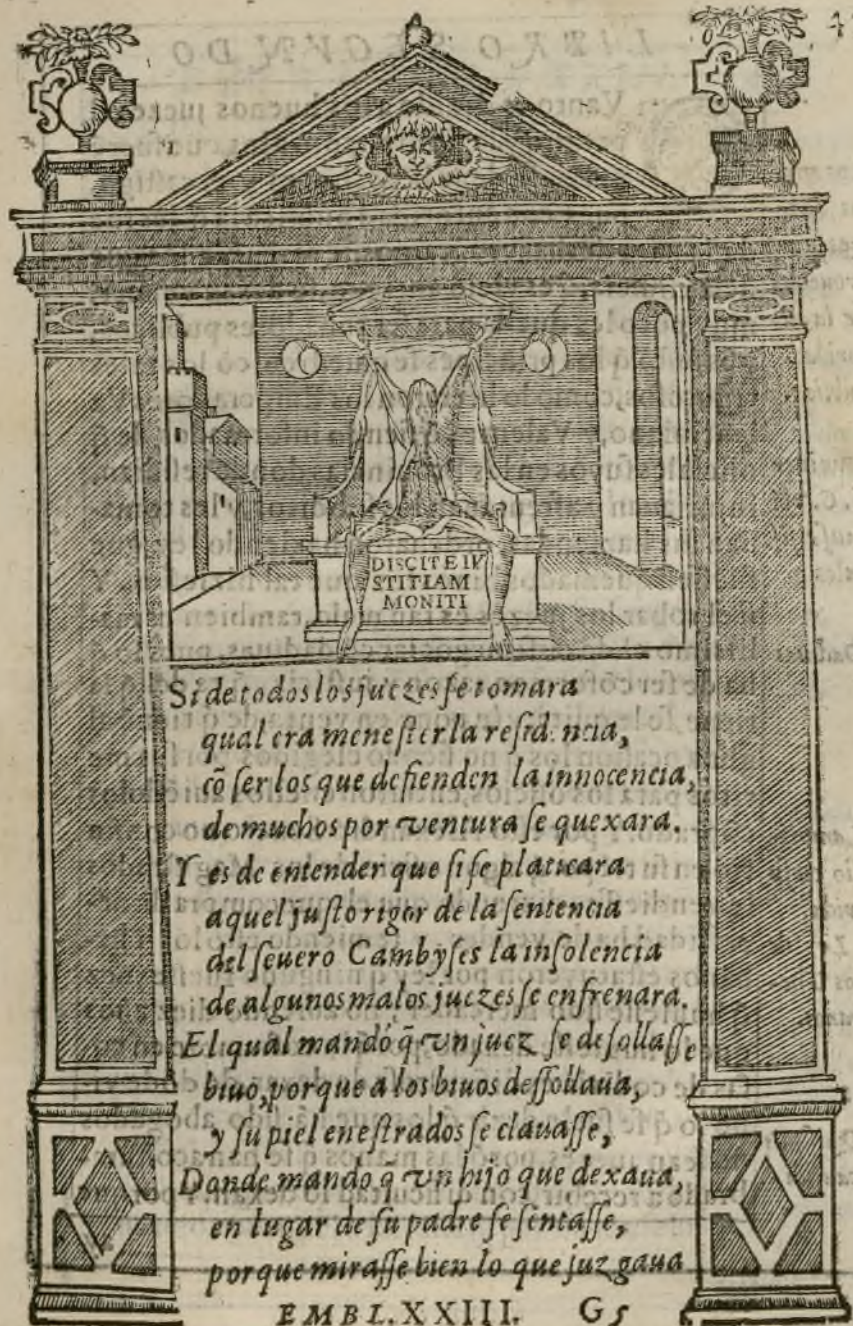 4
DISCITE IV
STITIAM
MONITI
Si de todos los juezes se tomara
qual era menester la resid ncia,
cõ ser los que defienden la innocencia,
de muchos por ventura se quexara.
Y es de entender que si se platicara
aquel justo rigor de la sentencia
del seuero Cambyses la insolencia
de algunos malos juezes se enfrenara.
El qual mandó q̃ vn juez se desollasse
biuo, porque a los biuos dessollaua,
y su piel en estrados se clauasse,
Donde mandó q̃ vn hijo que dexaua,
en lugar de su padre se sentasse,
porque mirasse bien lo que juzgaua
EMBL. XXIII. G5